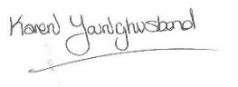 Karen Younghusband